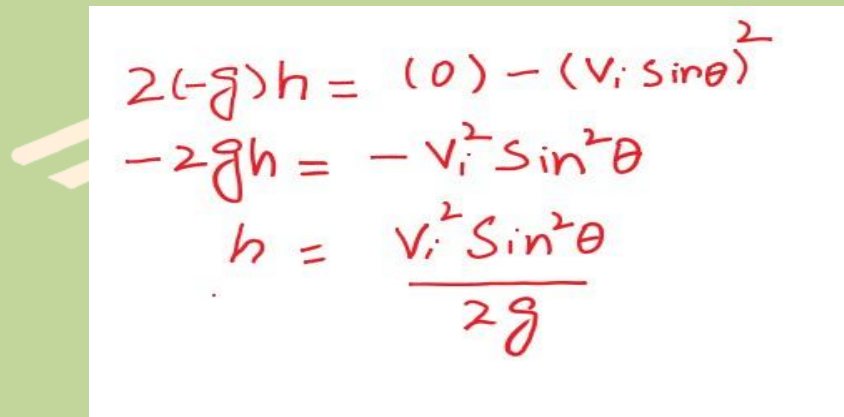 2(-g)h = (0) - (Vi sinθ)²
-2gh = - Vi² Sin²θ
h = Vi² Sin²θ / 2g